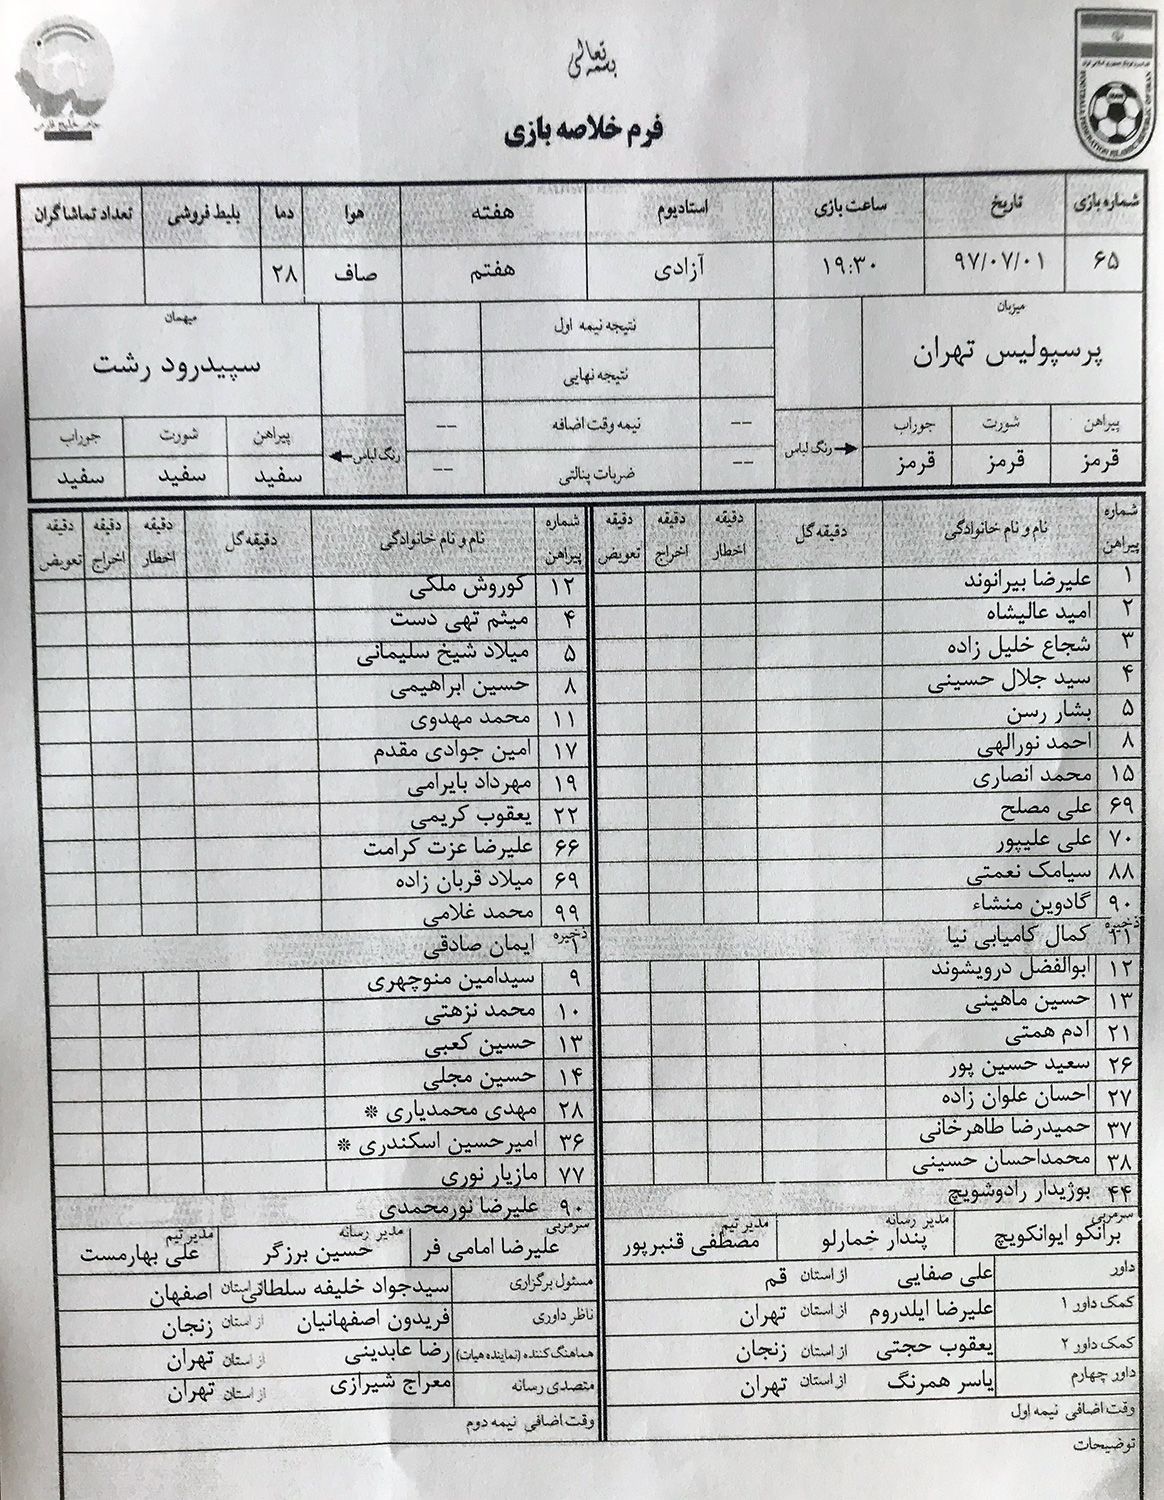 بسمه تعالی
فرم خلاصه بازی
FOOTBALL FEDERATION ISLAMIC REPUBLIC OF IRAN
جام خلیج فارس
شماره بازی تاریخ ساعت بازی استادیوم هفته هوا دما بلیط فروشی تعداد تماشاگران
۶۵ ۹۷/۰۷/۰۱ ۱۹:۳۰ آزادی هفتم صاف ۲۸
میزبان نتیجه نیمه اول میهمان
پرسپولیس تهران نتیجه نهایی سپیدرود رشت
پیراهن شورت جوراب رنگ لباس -- نیمه وقت اضافه -- رنگ لباس پیراهن شورت جوراب
قرمز قرمز قرمز -- ضربات پنالتی -- سفید سفید سفید
شماره پیراهن نام و نام خانوادگی دقیقه گل دقیقه اخطار دقیقه اخراج دقیقه تعویض شماره پیراهن نام و نام خانوادگی دقیقه گل دقیقه اخطار دقیقه اخراج دقیقه تعویض
۱ علیرضا بیرانوند ۱۲ کوروش ملکی
۲ امید عالیشاه ۴ میثم تهی دست
۳ شجاع خلیل زاده ۵ میلاد شیخ سلیمانی
۴ سید جلال حسینی ۸ حسین ابراهیمی
۵ بشار رسن ۱۱ محمد مهدوی
۸ احمد نورالهی ۱۷ امین جوادی مقدم
۱۵ محمد انصاری ۱۹ مهرداد بایرامی
۶۹ علی مصلح ۲۲ یعقوب کریمی
۷۰ علی علیپور ۶۶ علیرضا عزت کرامت
۸۸ سیامک نعمتی ۶۹ میلاد قربان زاده
۹۰ گادوین منشاء ۹۹ محمد غلامی
ذخیره ۱۱ کمال کامیابی نیا ذخیره ۱ ایمان صادقی
۱۲ ابوالفضل درویشوند ۹ سیدامین منوچهری
۱۳ حسین ماهینی ۱۰ محمد نزهتی
۲۱ ادم همتی ۱۳ حسین کعبی
۲۶ سعید حسین پور ۱۴ حسین مجلی
۲۷ احسان علوان زاده ۲۸ مهدی محمدیاری *
۳۷ حمیدرضا طاهرخانی ۳۶ امیرحسین اسکندری *
۳۸ محمداحسان حسینی ۷۷ مازیار نوری
۴۴ بوژیدار رادوشویچ ۹۰ علیرضا نورمحمدی
سرمربی برانکو ایوانکویچ مدیر رسانه پندار خمارلو مدیر تیم مصطفی قنبرپور سرمربی علیرضا امامی فر مدیر رسانه حسین برزگر مدیر تیم علی بهارمست
داور علی صفایی از استان قم مسئول برگزاری سیدجواد خلیفه سلطانی از استان اصفهان
کمک داور ۱ علیرضا ایلدروم از استان تهران ناظر داوری فریدون اصفهانیان از استان زنجان
کمک داور ۲ یعقوب حجتی از استان زنجان هماهنگ کننده (نماینده هیات) رضا عابدینی از استان تهران
داور چهارم یاسر همرنگ از استان تهران متصدی رسانه معراج شیرازی از استان تهران
وقت اضافی نیمه اول وقت اضافی نیمه دوم
توضیحات